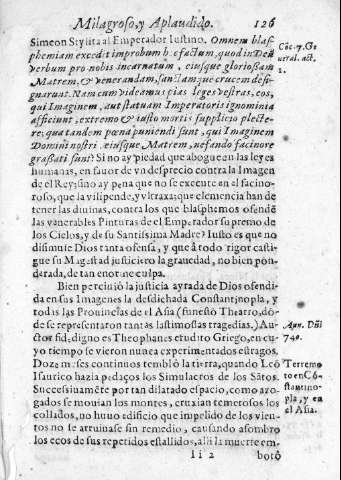 Milagroso, y Aplaudido. 126
Simeon Stylita al Emperador Iustino. Omnem blas-
phemiam excedit improbum hoc factum, quod in Deũ
verbum pro nobis incarnatum, eiusque gloriosam
Matrem, & venerandam, sanctamque crucem desi-
gnarunt. Nam cum videamus pias leges vestras, eos,
qui Imaginem, aut statuam Imperatoris ignominia
afficiunt, extremo & iusto mortis supplicio plecte-
re; qua tandem pœna puniendi sunt, qui Imaginem
Domini nostri, eiusque Matrem, nefando facinore
grassati sunt? Si no ay piedad que abogue en las leyes
humanas, en fauor de vn desprecio contra la Imagen
de el Rey; sino ay pena que no se execute en el facino-
roso, que la vilipende, y vltraxa; que clemencia han de
tener las diuinas, contra los que blasphemos ofendẽ
las vanerables Pinturas de el Emperador supremo de
los Cielos, y de su Santissima Madre? Iusto es que no
disimule Dios tanta ofensa, y que à todo rigor casti-
gue su Magestad justiciero la grauedad, no bien pon-
derada, de tan enorme culpa.
Bien percibiò la justicia ayrada de Dios ofendi-
da en sus Imagenes la desdichada Constantinopla, y
todas las Prouincias de el Asia (funesto Theatro, dõ-
de se representaron tantas lastimosas tragedias.) Au-
ctor fid, digno es Theophanes erudito Griego, en cu-
yo tiempo se vieron nunca experimentados estragos.
Doze meses continuos temblò la tierra, quando Leõ
Isaurico hazia pedaços los Simulacros de los Sãtos.
Successiuamẽte por tan dilatado espacio, como aro-
gados se mouian los montes, cruxian temerosos los
collados, no huuo edificio que impelido de los vien-
tos no se arruinase sin remedio, causando asombro
los ecos de sus repetidos estallidos, alli la muerte em-
Iii 2 botò
Cõc. 7. Ge
neral. act.
Ann. Dñi
740.
Terremo
to en Cõ-
stantino-
pla, y en
el Asia.